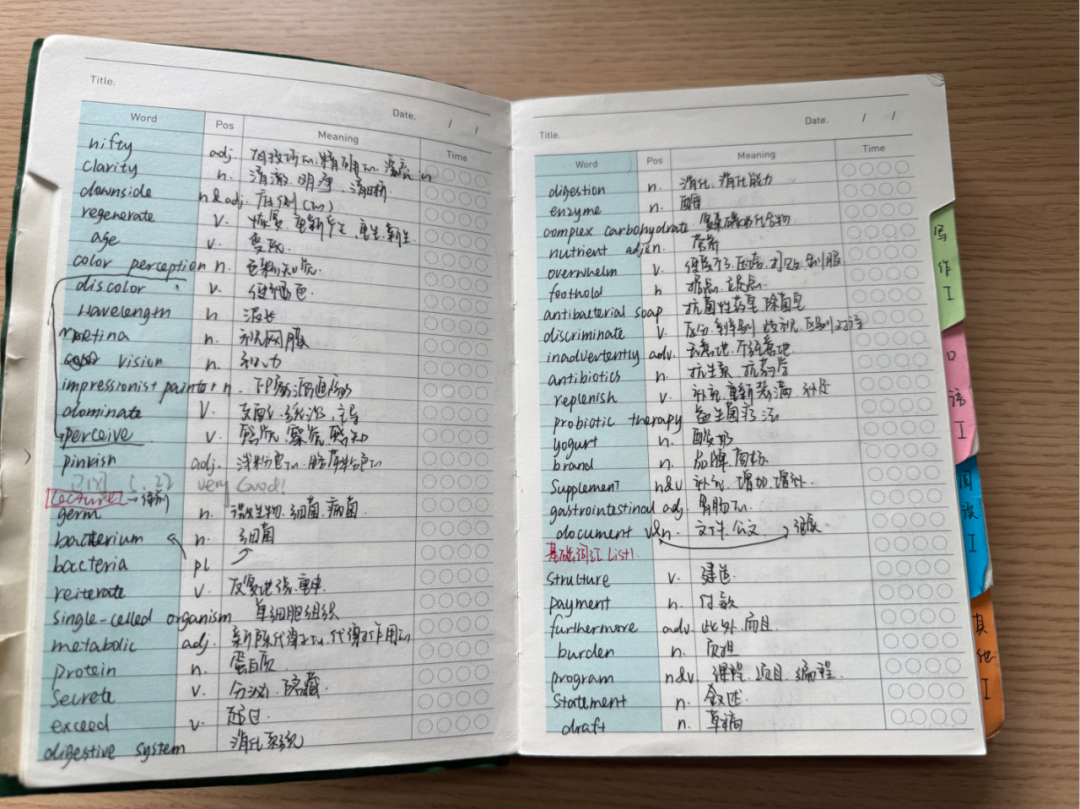 Title.
Date. / /
Word Pos Meaning Time
nifty adj.
clarity n. 清澈.明净.清晰
downside n&adj.
regenerate v. 恢复.重新产生.重生.新生
age v. 变
color perception n.
discolor v. 使褪色
wavelength n 波长
retina n. 视网膜
vision n. 视力
impressionist painter n. 印象派画家
dominate v. 支配.统治.主导
perceive v. 感觉.察觉.感知
pinkish adj. 浅粉色
very Good!
lecture
germ n. 微生物.细菌.病菌
bacterium n. 细菌
bacteria pl
reiterate v. 反复地说.重申
single-celled organism 单细胞组织
metabolic adj. 新陈代谢的.代谢作用的
protein n. 蛋白质
secrete v. 分泌.隐藏
exceed v. 超过.
digestive system 消化系统
Title.
Date. / /
Word Pos Meaning Time
digestion n. 消化.消化能力
enzyme n. 酶
complex carbohydrate 复杂碳水化合物
nutrient adj&n. 营养
overwhelm v.
foothold n 据点.立足点
antibacterial soap 抗菌性药皂 除菌皂
discriminate v. 区分.
inadvertently adv. 无意地.不经意地
antibiotics n. 抗生素.抗药学
replenish v. 补充.重新装满 补足
probiotic therapy 益生菌疗法
yogurt n. 酸奶
brand n. 品牌.商标
Supplement n&v. 补充.增加.增补.
gastrointestinal adj. 胃肠的
document v&n. 文件.公文
基础词汇 List1
structure v. 建造.
payment n. 付款
furthermore adv. 此外.而且
burden n.
program n&v. 课程.项目.编程.
Statement n. 叙述
draft n. 草稿
写作 I
口语 I
阅读 I
其他 I